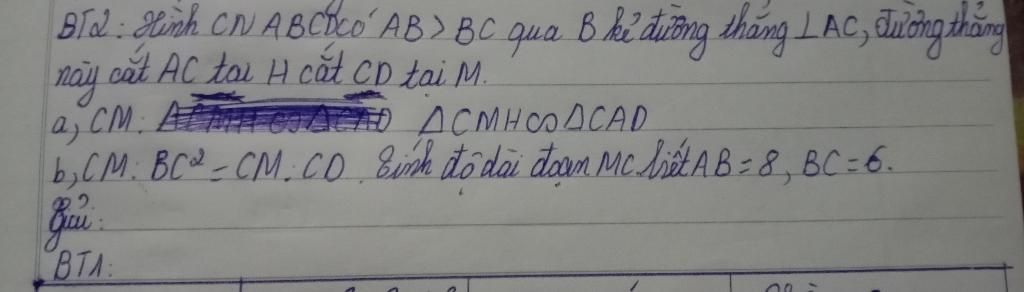 BT2: Hình CN ABCD có AB > BC qua B kẻ đường thẳng ⊥AC, đường thẳng
này cắt AC tại H cắt CD tại M.
a, CM: ΔCMH ∽ ΔCAD
b, CM: BC² = CM. CD. Tính độ dài đoạn MC biết AB = 8, BC = 6.
Giải:
BT1: